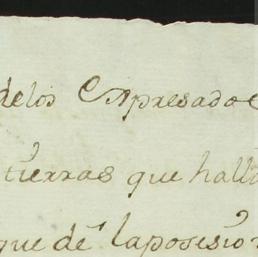 delos Expresado
tierras que hall
que de laposesión